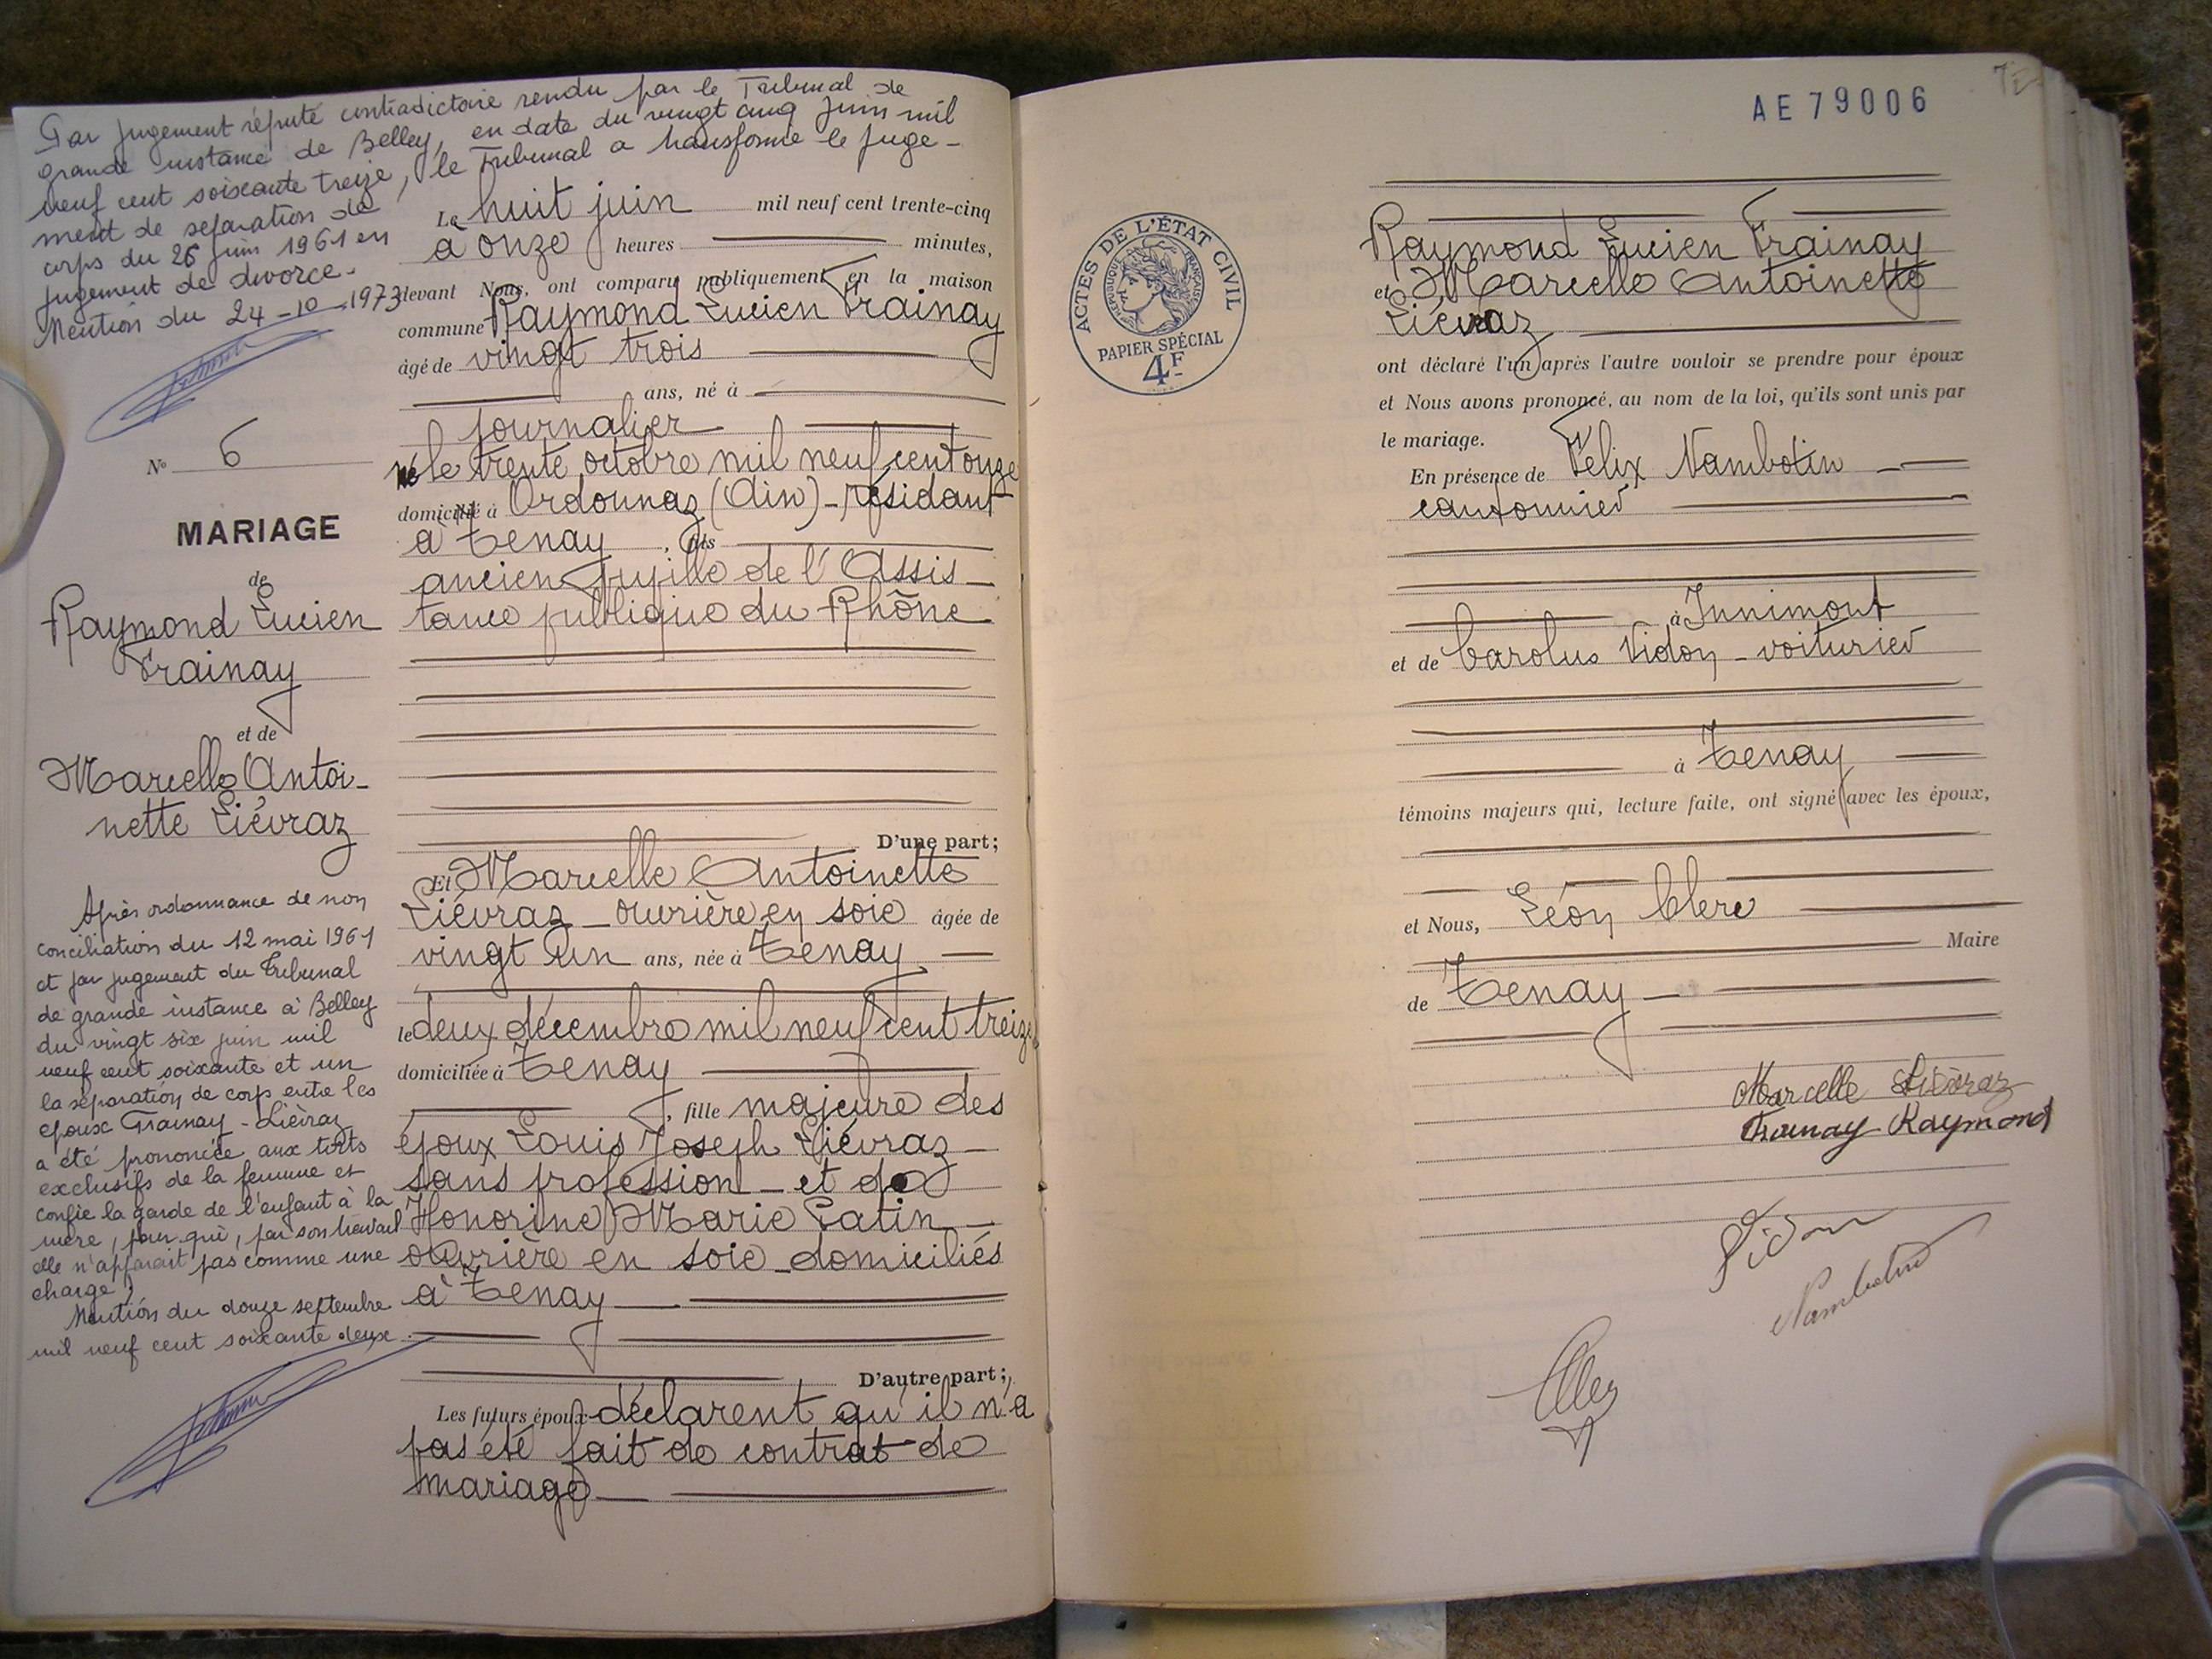 Par jugement réputé contradictoire rendu par le Tribunal de
grande instance de Belley, en date du vingt cinq juin mil
neuf cent soixante treize, le Tribunal a transformé le juge-
ment de séparation de
corps du 26 juin 1961 en
jugement de divorce.
Mention du 24-10-1973
N° 6
MARIAGE
de
Raymond Lucien
Trainay
et de
Marcelle Antoi-
nette Liévraz
Après ordonnance de non
conciliation du 12 mai 1961
et par jugement du Tribunal
de grande instance à Belley
du vingt six juin mil
neuf cent soixante et un
la séparation de corps entre les
époux Trainay - Liévraz
a été prononcée aux torts
exclusifs de la femme et
confie la garde de l'enfant à la
mère, pour qui, par son travail
elle n'apparait pas comme une
charge.
Mention du douze septembre
mil neuf cent soixante deux.
Le huit juin mil neuf cent trente-cinq
à onze heures minutes,
devant Nous, ont comparu publiquement en la maison
commune Raymond Lucien Trainay
âgé de vingt trois
ans, né à
journalier
né le trente octobre mil neuf cent onze
domicilié à Ordonnaz (Ain) - résidant
à Tenay, fils
ancien pupille de l'Assis-
tance publique du Rhône
D'une part;
Et Marcelle Antoinette
Liévraz - ouvrière en soie âgée de
vingt un ans, née à Tenay
le deux décembre mil neuf cent treize
domiciliée à Tenay
, fille majeure des
époux Louis Joseph Liévraz -
sans profession - et de
Honorine Marie Patin -
ouvrière en soie domiciliés
à Tenay
D'autre part;
Les futurs époux déclarent qu'il n'a
pas été fait de contrat de
mariage
AE79006
ACTES DE L'ÉTAT CIVIL
RÉPUBLIQUE FRANÇAISE
PAPIER SPÉCIAL
4F
Raymond Lucien Trainay
et Marcelle Antoinette
Liévraz
ont déclaré l'un après l'autre vouloir se prendre pour époux
et Nous avons prononcé, au nom de la loi, qu'ils sont unis par
le mariage.
En présence de Félix Nambotin
cantonnier
à Innimont
et de Carolus Vidon - voiturier
à Tenay
témoins majeurs qui, lecture faite, ont signé avec les époux,
et Nous, Léon Clerc
Maire
de Tenay
Marcelle Liévraz
Trainay Raymond
Vidon
Nambotin